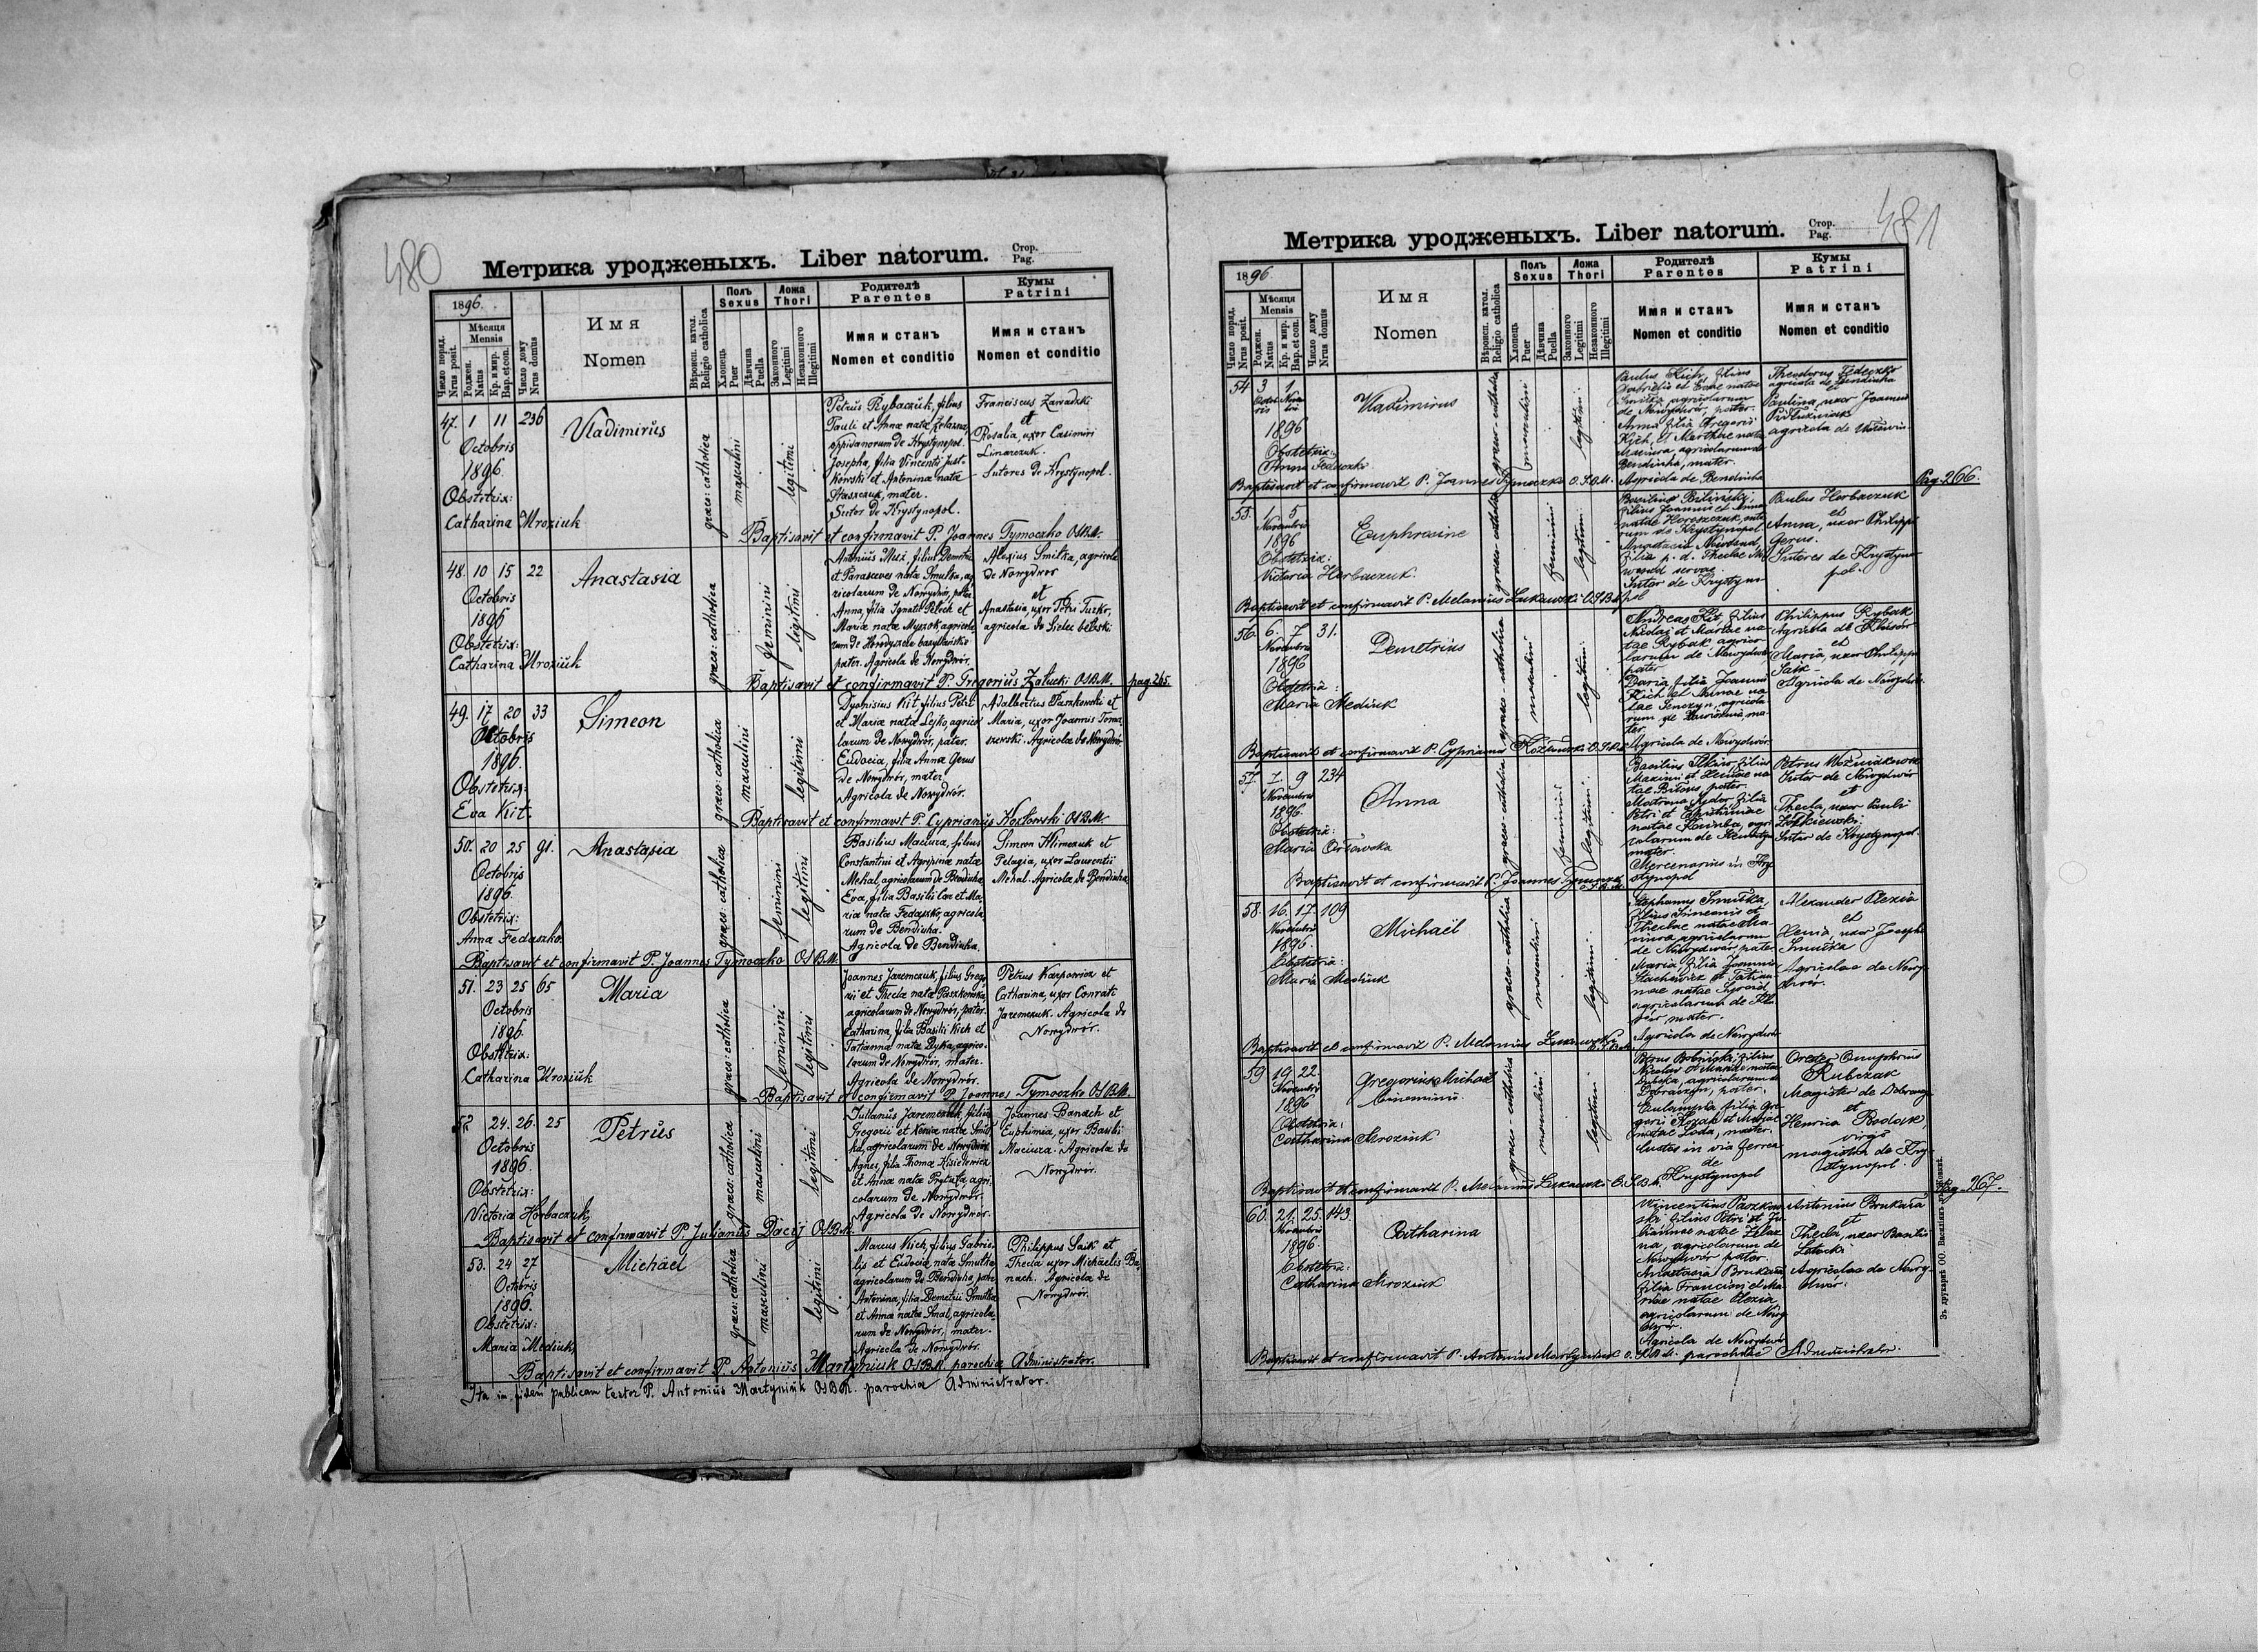 480
Метрика уродженыхъ. Liber natorum.
Стор.
Pag.
1896.
Число поряд.
Nrus posit.
Мѣсяця
Mensis
Роджен.
Natus
Кр. и мир.
Bap. et con.
Число дому
Nrus domus
Имя
Nomen
Вѣроисп. катол.
Religio catholica
Полъ
Sexus
Хлопець
Puer
Дѣвчина
Puella
Ложа
Thori
Законного
Legitimi
Незаконного
Illegitimi
Родителѣ
Parentes
Имя и станъ
Nomen et conditio
Кумы
Patrini
Имя и станъ
Nomen et conditio
47. 1 11 236
Octobris
1896
Obstetrix:
Catharina Mroziuk
Vladimirus
graeco: catholica
masculini
legitimi
Petrus Rybaczuk, filius
Pauli et Annae natae Żelazna,
oppidanorum de Krystynopol.
Josepha, filia Vincentii Just-
kowski et Antoninae natae
Staszczuk, mater.
Sutor de Krystynopol.
Franciscus Zawadzki
et
Rosalia, uxor Casimiri
Linarczuk.
Sutores de Krystynopol.
Baptisavit et confirmavit P. Joannes Tymoczko OSBM.
48. 10 15 22
Octobris
1896
Obstetrix:
Catharina Mroziuk
Anastasia
graeco: catholica
feminini
legitimi
et Parasceves natae Smulka, ag-
ricolarum de Nowydwór, pater
Anna, filia Ignatii Peloch et
Mariae natae Myszok, agricola-
rum de Horodyszcze bazyliańskie
pater. Agricola de Nowydwór.
Alexius Smulka, agricola
de Nowydwor
et
Anastasia, uxor Petri Turko,
agricola de Sielec bełzski.
Baptisavit et confirmavit P. Gregorius Załucki OSBM.
pag. 265.
49. 17 20 33
Octobris
1896.
Obstetrix:
Eva Kit.
Simeon
graeco: catholica
masculini
legitimi
Dyonisius Kit, filius Petri
et Mariae natae Lejko, agrico-
larum de Nowydwór, pater.
Eudocia, filia Annae Gerus
de Nowydwór, mater
Agricola de Nowydwór.
Adalbertus Paszkowski et
Maria, uxor Joannis Toma-
szewski. Agricolae de Nowydwór
Baptisavit et confirmavit P. Cyprianus Kozłowski OSBM.
50. 20 25 91.
Octobris
1896.
Obstetrix:
Anna Fedaszko.
Anastasia
graeco: catholica
feminini
legitimi
Basilius Maciura, filius
Constantini et Agripinae natae
Mehal, agricolarum de Bendiuha
Eva, filia Basilii Can et Ma-
riae natae Fedaszko, agricola-
rum de Bendiuha.
Agricola de Bendiuha.
Simeon Klimczuk et
Pelagia, uxor Laurentii
Mehal. Agricolae de Bendiuha
Baptisavit et confirmavit P. Joannes Tymoczko OSBM.
51. 23 25 65
Octobris
1896.
Obstetrix:
Catharina Mroziuk
Maria
graeco: catholica
feminini
legitimi
Joannes Jaremczuk, filius Grego-
rii et Theclae natae Paszkowska,
agricolarum de Nowydwór, pater.
Catharina, filia Basilii Kich et
Tatiannae natae Dyka, agrico-
larum de Nowydwór, mater.
Agricola de Nowydwór.
Petrus Karpowicz et
Catharina, uxor Conrati
Jaremczuk. Agricola de
Nowydwór.
Baptisavit et confirmavit P. Joannes Tymoczko OSBM.
52 24. 26. 25
Octobris
1896.
Obstetrix:
Victoria Horbaczuk,
Petrus
graeco: catholica
masculini
legitimi
Julianus Jaremczuk, filius
Gregorii et Xeniae natae Smul-
ka, agricolarum de Nowydwór.
Agnes, filia Thomae Kisielewicz
et Annae natae Prytuła, agri-
colarum de Nowydwór.
Agricola de Nowydwór.
Joannes Banach et
Euphimia, uxor Basilii
Maciura. Agricola de
Nowydwór.
Baptisavit et confirmavit P. Julianus Dacij OSBM.
53. 24 27
Octobris
1896.
Obstetrix:
Maria Mediuk,
Michael
graeco: catholica
masculini
legitimi
Marcus Kich, filius Gabrie-
lis et Eudociae natae Smulka
agricolarum de Bendiuha, pater
Antonina, filia Demetrii Smulka
et Annae natae Smal, agricola-
rum de Nowydwór, mater.
Agricola de Nowydwór.
Philippus Saik et
Thecla uxor Michaelis Ba-
nach. Agricolae de
Nowydwór.
Baptisavit et confirmavit P. Antonius Martyniuk OSBM. parochiae Administrator.
Ita in fidem publicam testor P. Antonius Martyniuk OSBM. parochiae Administrator.
481
Метрика уродженыхъ. Liber natorum.
Стор.
Pag.
1896.
Число поряд.
Nrus posit.
Мѣсяця
Mensis
Роджен.
Natus
Кр. и мир.
Bap. et con.
Число дому
Nrus domus
Имя
Nomen
Вѣроисп. катол.
Religio catholica
Полъ
Sexus
Хлопець
Puer
Дѣвчина
Puella
Ложа
Thori
Законного
Legitimi
Незаконного
Illegitimi
Родителѣ
Parentes
Имя и станъ
Nomen et conditio
Кумы
Patrini
Имя и станъ
Nomen et conditio
54 3 1
1896
Obstetrix:
Anna Fedaszko
Vladimirus
graeco-catholica
masculini
legitimi.
Paulus Kich, filius
Gabrielis et Evae natae
Smulka agricolarum
de Nowydwór, pater.
Anna filia Gregorii
Kich, et Marthae natae
Maciura, agricolarum de
Bendiuha, mater.
Agricola de Bendiuha
Theodorus Fedeczko
agricola de Bendiuha
et
Paulina, uxor Joannis
agricola de
Baptisavit et confirmavit P. Joannes Tymoczko O.S.B.M.
Pag. 266.
55. 1 5
Novembris
1896
Obstetrix:
Victoria Horbaczuk.
Euphrosine
graeco-catholica
feminini
legitimi.
Basilius Bilinski,
filius Joannis et Annae
rum de Krystynopol
Sutor de Krystyno-
pol
Paulus Horbaczuk
et
Anna, uxor Philippi
Gerus.
Sutores de Krystyno-
pol.
Baptisavit et confirmavit P. Melanius Łukawski O.S.B.M.
56. 6. 7 31.
Novembris
1896
Obstetrix:
Maria Mediuk
Demetrius
graeco-catholica
masculini
legitimi.
Andreas Kit, filius
Nicolai et Mariae na-
tae Rybak agrico-
larum de Nowydwór,
pater
Daria, filia Joannis
Kich et Annae na-
tae
rum de
ter.
Agricola de Nowydwór.
Philippus Rybak
Agricola de
et
Maria, uxor Philippi
Saik
Agricola de Nowydwór.
Baptisavit et confirmavit P. Cyprianus Kozłowski O.S.B.M.
57. 7. 9 234
Novembris
1896.
Obstetrix:
Maria
Anna
graeco-catholica
feminini
legitimi.
Basilius filius
Maximi et Xeniae na-
tae pater.
Matrona Feder, filia
Petri et
natae agri-
colarum de
mater.
Mercenarius in Kry-
stynopol
Petrus
Sutor de Nowydwór
et
Thecla, uxor Pauli
Żołkiewski.
Sutor de Krystynopol.
Baptisavit et confirmavit P. Joannes Tymoczko
O.S.B.M.
58. 16. 17. 109
Novembris
1896.
Obstetrix:
Maria Mediuk
Michaël
graeco-catholica
masculini
legitimi.
Stephanus Smulka,
filius Simeonis et
Theclae natae Ma-
ciura agricolarum
de Nowydwór, pater
Maria, filia Joannis
Stachewicz et Tatian-
nae natae
agricolarum de
mater.
Agricola de Nowydwór
Alexander Olexia
et
Xenia, uxor Josephi
Smulka
Agricolae de Nowy-
dwór.
Baptisavit et confirmavit P. Melanius Łukawski
O.S.B.M.
59 19. 22.
Novembris
1896
Obstetrix:
Catharina Mroziuk
Gregorius Michael
binominis
graeco-catholica
masculini
legitimi
Petrus filius
Nicolai et Mariae natae
agricolarum de
pater.
filia Gre-
gorii et Mariae
natae mater.
Custos in via ferrea
de
Krystynopol
Orestes Onuphrius
Rubczak
Magister de
et
Henrica
virgo
magistra de Kry-
stynopol.
Baptisavit et confirmavit P. Melanius Łukawski O.S.B.M.
Pag. 267.
60. 21. 25. 143.
Novembris
1896.
Obstetrix:
Catharina Mroziuk
Catharina
Vincentius Paszkow-
ski filius Petri et Ju-
liannae natae Żelaz-
na, agricolarum de
Nowydwór pater.
Anastasia
filia Francisci et Ma-
riae natae Olexia
agricolarum de Nowy-
dwór.
Agricola de Nowydwór
Antonius
et
Thecla, uxor Basilii
Agricolae de Nowy-
dwór.
Baptisavit et confirmavit P. Antonius Martyniuk O.S.B.M. parochiae Administrator.
Зъ друкарнѣ ОО. Василіянъ въ Жовквѣ.